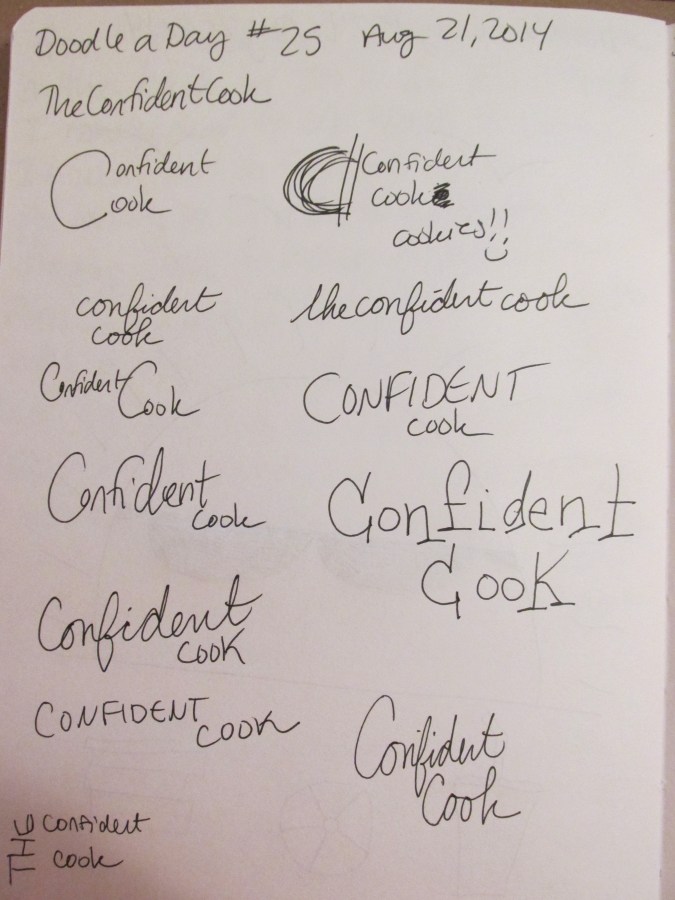 Doodle a Day #25 Aug 21, 2014
TheConfidentCook
Confident
Cook
Confident
cook
cookies!!
confident
cook
the confident cook
Confident Cook
CONFIDENT
cook
Confident
cook
Confident
Cook
Confident
cook
CONFIDENT
COOK
Confident
Cook
THE
Confident
cook